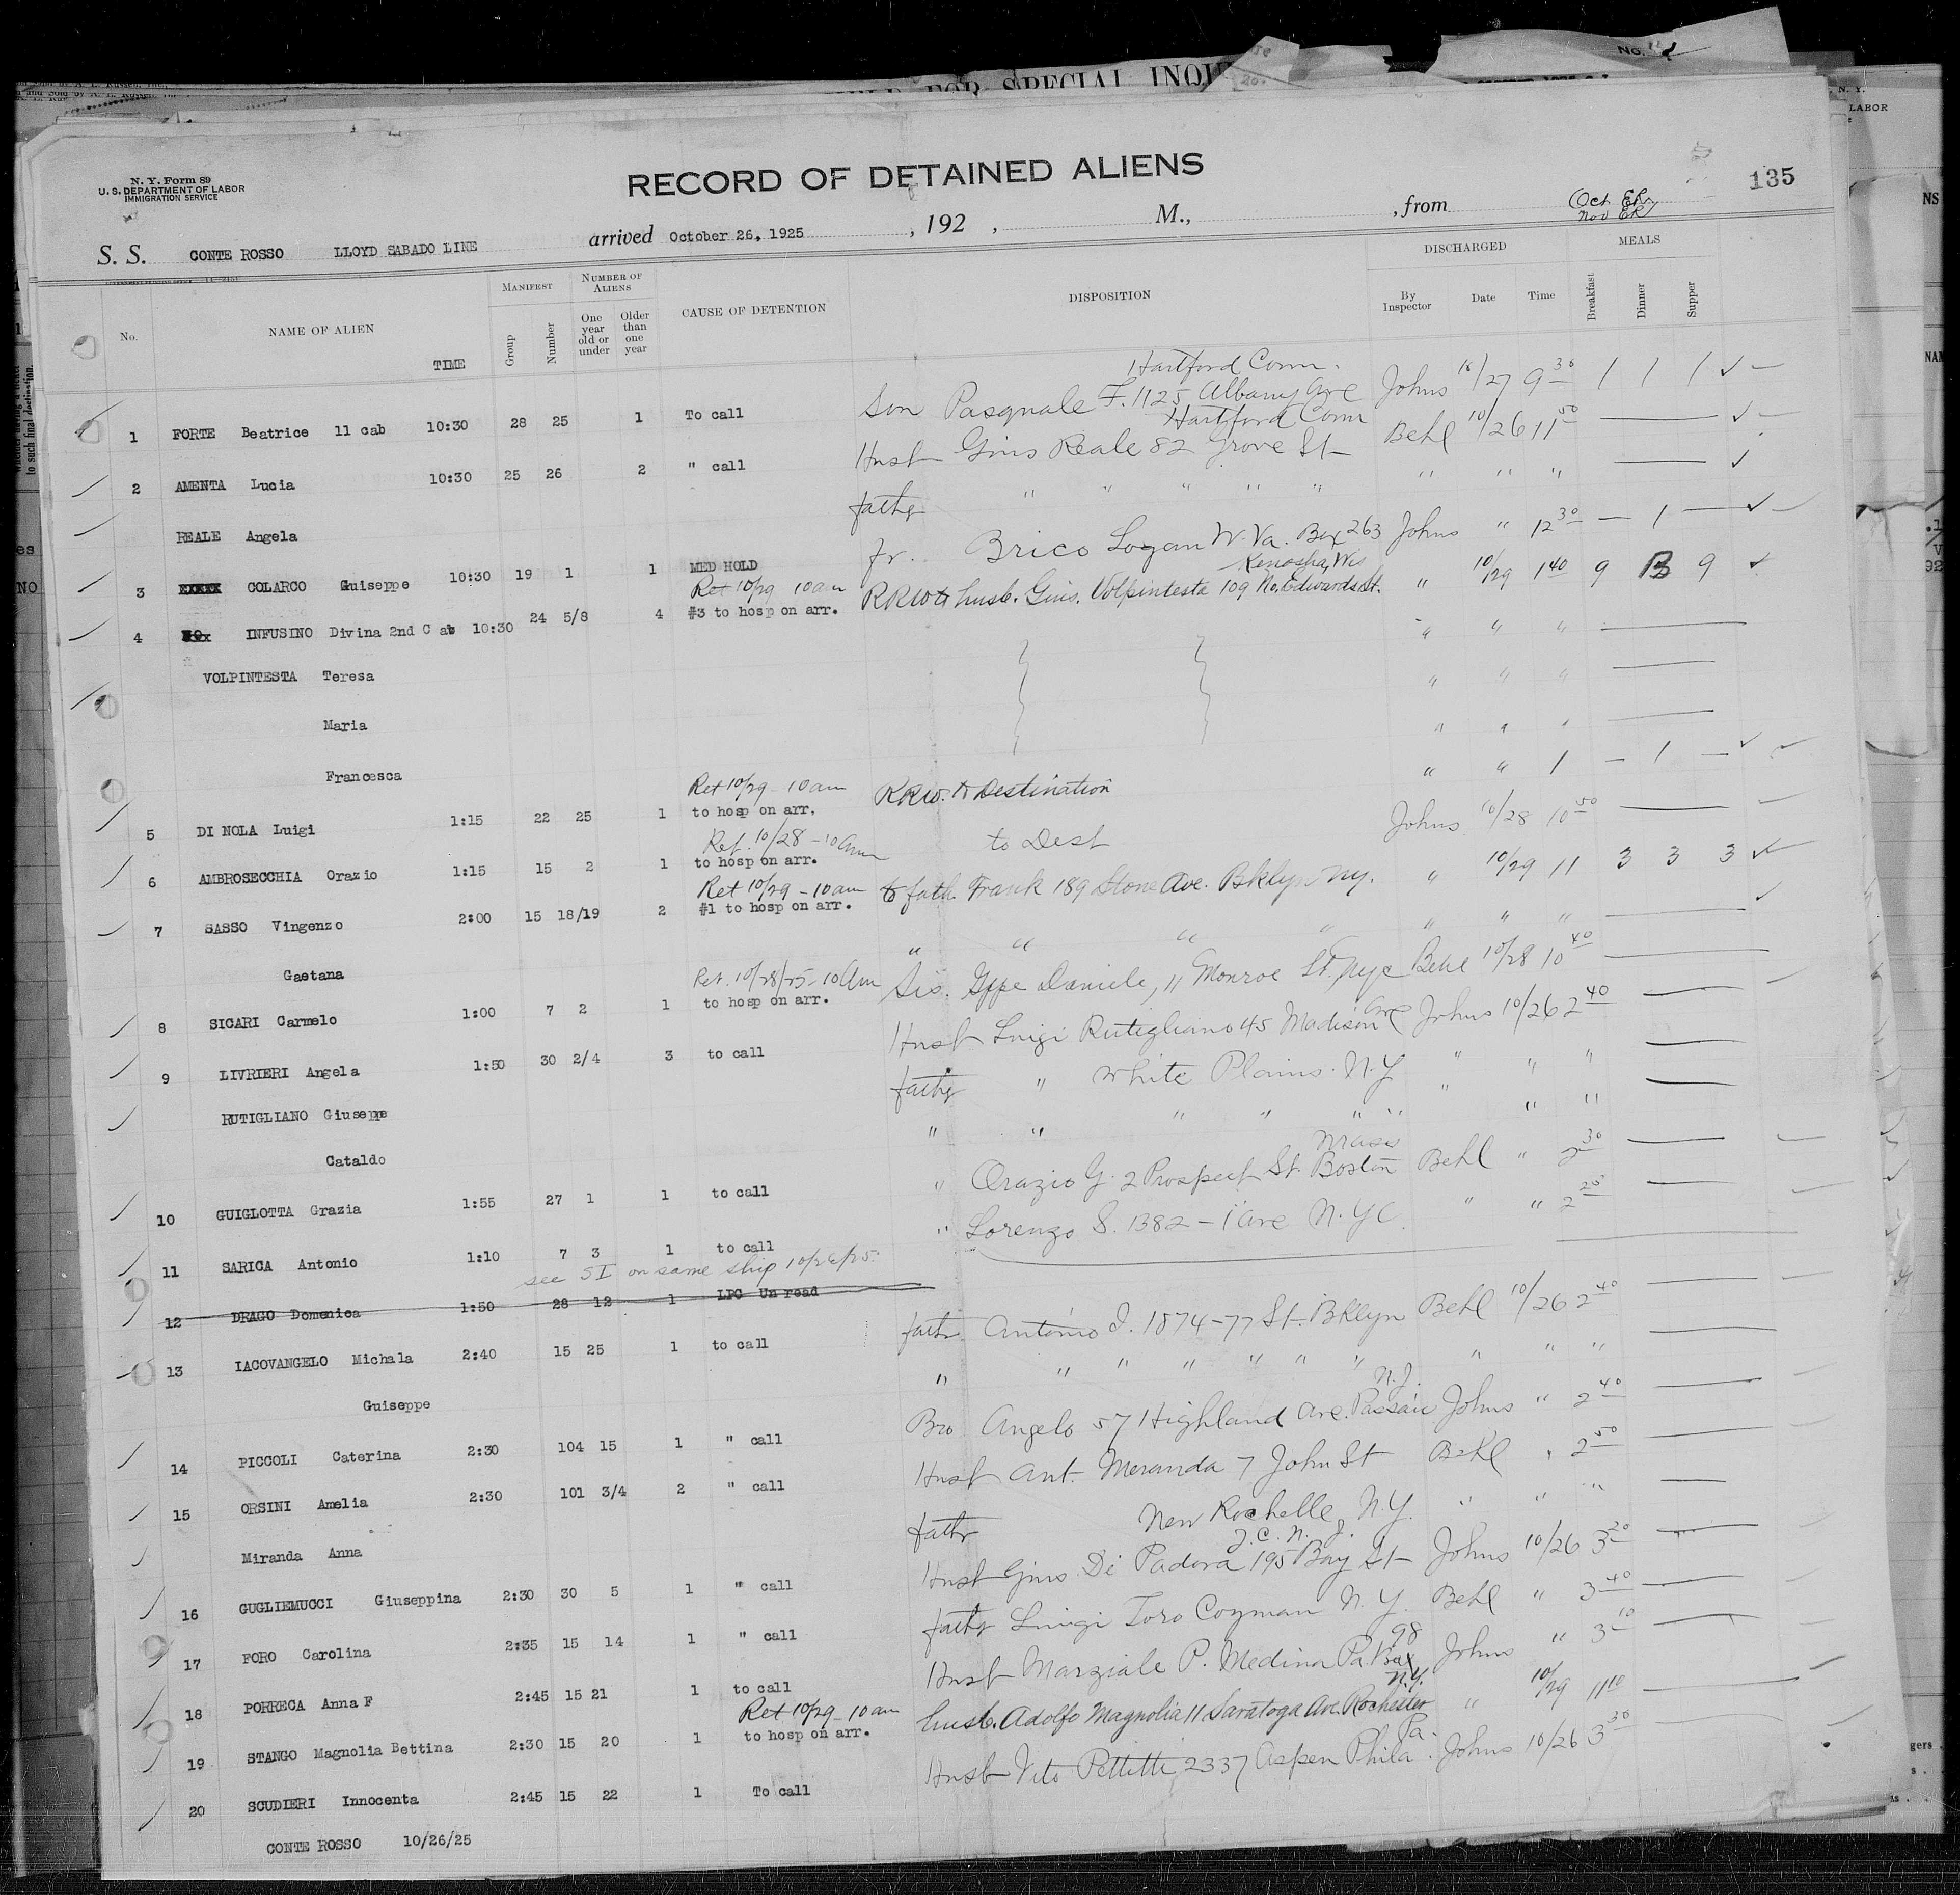 No.
FOR SPECIAL INQUI
N. Y.
LABOR
N. Y. Form 89
U. S. DEPARTMENT OF LABOR
IMMIGRATION SERVICE
RECORD OF DETAINED ALIENS
135
S. S. CONTE ROSSO LLOYD SABADO LINE arrived October 26, 1925 , 192 , M., , from
Oct ER
Nov ER
No. NAME OF ALIEN TIME MANIFEST Group Number NUMBER OF ALIENS One year old or under Older than one year CAUSE OF DETENTION DISPOSITION DISCHARGED By Inspector Date Time MEALS Breakfast Dinner Supper
Hartford Conn.
1 FORTE Beatrice 11 cab 10:30 28 25 1 To call Son Pasquale F. 1125 Albany Ave Johns 10/27 9 30 1 1 1 ✓ —
Hartford Conn
2 AMENTA Lucia 10:30 25 26 2 " call Husb Gius Reale 82 Grove St Behl 10/26 11 50 — ✓ —
REALE Angela father " " " " " " " " — ✓
3 COLARCO Guiseppe 10:30 19 1 1 MED HOLD fr. Brico Logan W. Va. Box 263 Johns " 12 30 — 1 — ✓ —
Ret 10/29 10am
Kenosha, Wis
4 INFUSINO Divina 2nd C ab 10:30 24 5/8 4 #3 to hosp on arr. RRW to husb. Gius. Volpintesta 109 No. Edwards St. " 10/29 1 40 9 B 9 ✓
VOLPINTESTA Teresa " " " —
Maria " " " —
Francesca " " " —
Ret 10/29 10am
5 DI NOLA Luigi 1:15 22 25 1 to hosp on arr. RRW. to Destination " " 1 — 1 — ✓
Ret. 10/28 - 10am
6 AMBROSECCHIA Orazio 1:15 15 2 1 to hosp on arr. to Dest Johns 10/28 10 50 —
Ret 10/29 - 10am
7 SASSO Vingenzo 2:00 15 18/19 2 #1 to hosp on arr. to fath. Frank 189 Stone Ave. Bklyn N.Y. " 10/29 11 3 3 3 ✓
Gaetana " " " " " " " — ✓
Ret. 10/28/25 - 10am
8 SICARI Carmelo 1:00 7 2 1 to hosp on arr. Sis. Gppe Daniele, 11 Monroe St. nyc Behl 10/28 10 40 —
9 LIVRIERI Angela 1:50 30 2/4 3 to call Husb Luigi Rutigliano 45 Madison Ave Johns 10/26 2 40 —
RUTIGLIANO Giuseppe father " White Plains. N.Y " " " —
Cataldo " " " " " " " " " —
Mass
10 GUIGLOTTA Grazia 1:55 27 1 1 to call " Orazio G. 2 Prospect St. Boston Behl " 2 30 —
11 SARICA Antonio 1:10 7 3 1 to call " Lorenzo S. 1382 - 1 Ave N.Y.C. " " 2 20 —
see SI on same ship 10/26/25
12 DRAGO Domenica 1:50 28 12 1 LPC Un read
13 IACOVANGELO Michala 2:40 15 25 1 to call fathr Antonio I. 1874-77 St. Bklyn Behl 10/26 2 40 —
Guiseppe " " " " " " " " " " —
N.J.
14 PICCOLI Caterina 2:30 104 15 1 " call Bro Angelo 57 Highland Ave. Passaic Johns " 2 40 —
15 ORSINI Amelia 2:30 101 3/4 2 " call Husb Ant. Meranda 7 John St Behl " 2 50 —
Miranda Anna fathr New Rochelle, N.Y. " " " —
J.C. N.J.
16 GUGLIEMUCCI Giuseppina 2:30 30 5 1 " call Husb Gius Di Padova 195 Bay St Johns 10/26 3 20 —
17 FORO Carolina 2:35 15 14 1 " call fathr Luigi Toro Coyman N.Y. Behl " 3 40 —
98
18 PORRECA Anna F 2:45 15 21 1 to call Husb Marziale P. Medina Pa. Box Johns " 3 10 —
Ret 10/29 10am
N.Y.
19 STANGO Magnolia Bettina 2:30 15 20 1 to hosp on arr. husb. Adolfo Magnolia 11 Saratoga Ave. Rochester " 10/29 11 10 —
Pa.
20 SCUDIERI Innocenta 2:45 15 22 1 To call Husb Vito Pettitti 2337 Aspen Phila Johns 10/26 3 30
CONTE ROSSO 10/26/25